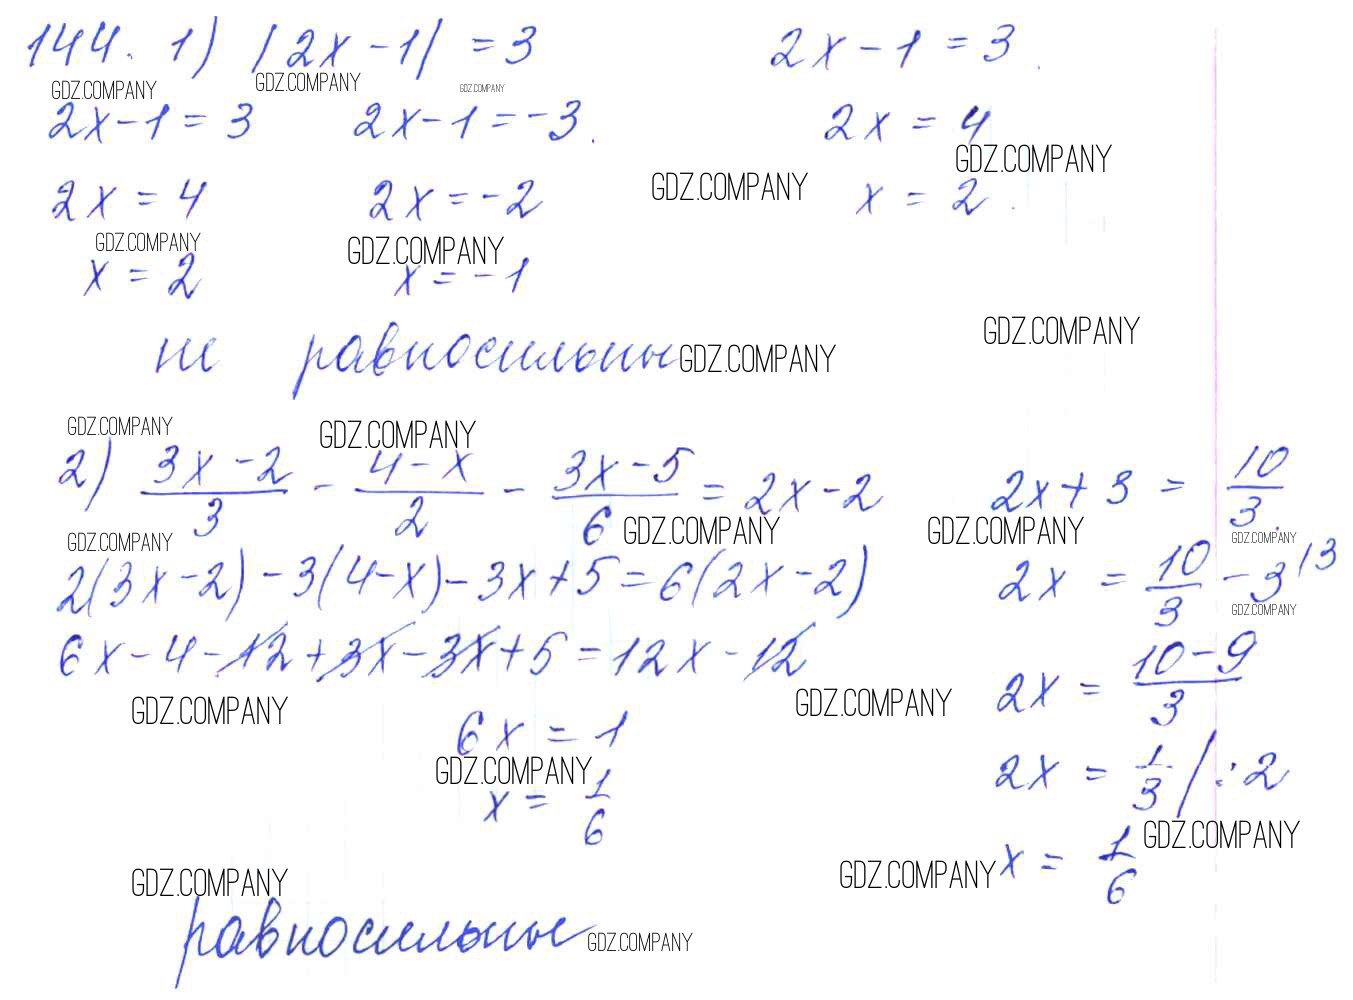 144. 1) |2x-1| = 3      2x-1 = 3
GDZ.COMPANY GDZ.COMPANY GDZ.COMPANY
2x-1 = 3      2x-1 = -3.      2x = 4
GDZ.COMPANY
2x = 4      2x = -2 GDZ.COMPANY x = 2
GDZ.COMPANY GDZ.COMPANY
x = 2      x = -1
GDZ.COMPANY
не равносильны GDZ.COMPANY
GDZ.COMPANY GDZ.COMPANY
2) (3x-2)/3 - (4-x)/2 - (3x-5)/6 = 2x-2      2x+3 = 10/3
GDZ.COMPANY GDZ.COMPANY GDZ.COMPANY GDZ.COMPANY
2(3x-2) - 3(4-x) - 3x+5 = 6(2x-2)      2x = 10/3 - 3 |3
GDZ.COMPANY
6x-4-12+3x-3x+5 = 12x-12      2x = (10-9)/3
GDZ.COMPANY GDZ.COMPANY
6x = 1      2x = 1/3 |:2
GDZ.COMPANY
x = 1/6      x = 1/6
GDZ.COMPANY GDZ.COMPANY GDZ.COMPANY
равносильны GDZ.COMPANY